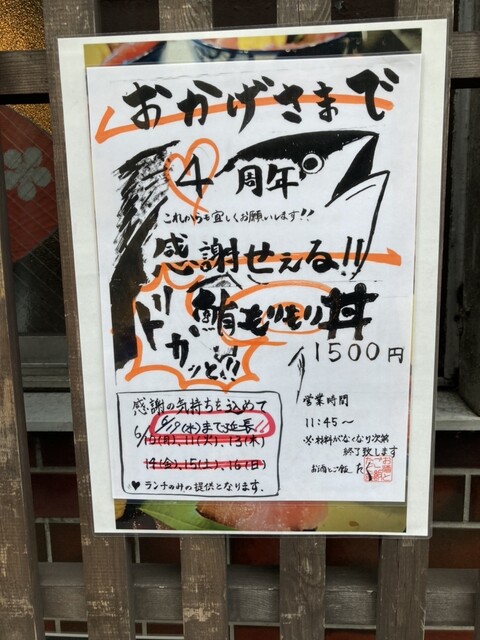 おかげさまで
4周年
これからも宜しくお願いします!!
感謝せぇる!!
ドカッと!!
鮪もりもり丼
1500円
感謝の気持ちを込めて
6/19(水)まで延長!!
6/10(月)、11(火)、13(木)
14(金)、15(土)、16(日)
♥ランチのみの提供となります。
営業時間
11:45～
※材料がなくなり次第
終了致します
お酒とご飯 たくら